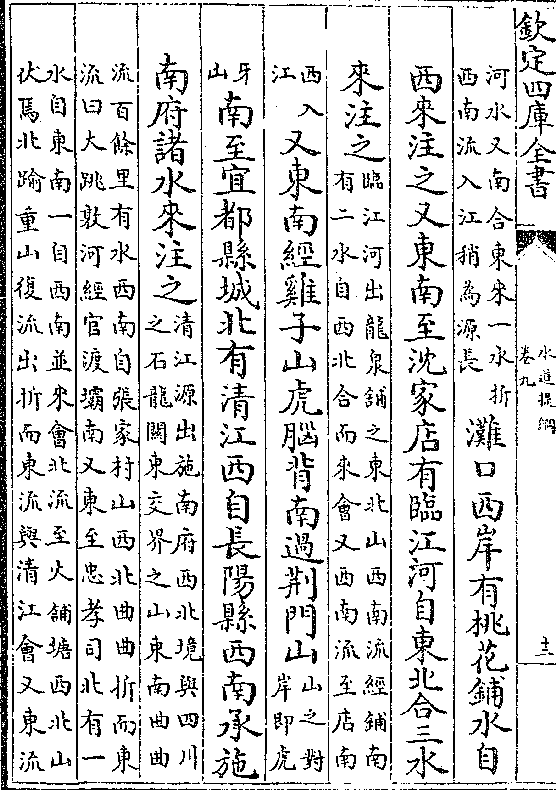 欽定四庫全書
水道提綱
卷九
十三
河水又南合東來一水折
西南流入江稍為源長
灘口西岸有桃花鋪水自
西來注之又東南至沈家店有臨江河自東北合三水
來注之
臨江河出龍泉鋪之東北山西南流經鋪南
有二水自西北合而來會又西南流至店南
西入
江
又東南經雞子山虎腦背南過荆門山
山之對
岸即虎
牙
山
南至宜都縣城北有清江西自長陽縣西南承施
南府諸水來注之
清江源出施南府西北境與四川
之石龍關東交界之山東南曲曲
流百餘里有水西南自張家村山西北曲曲折而東
流曰大跳敦河經官渡壩南又東至忠孝司北有一
水自東南一自西南並來會北流至火鋪塘西北山
伏焉北踰重山復流出折而東流與清江會又東流